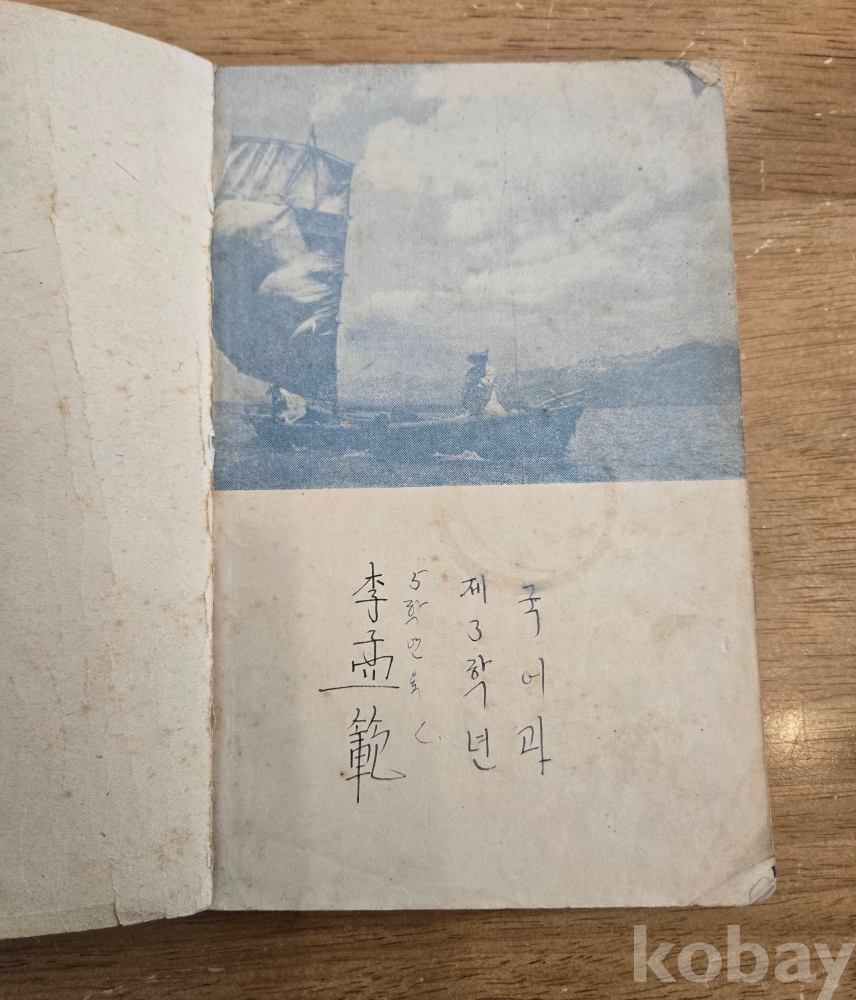 국어과
제3학년
5학년
李孟範
kobay